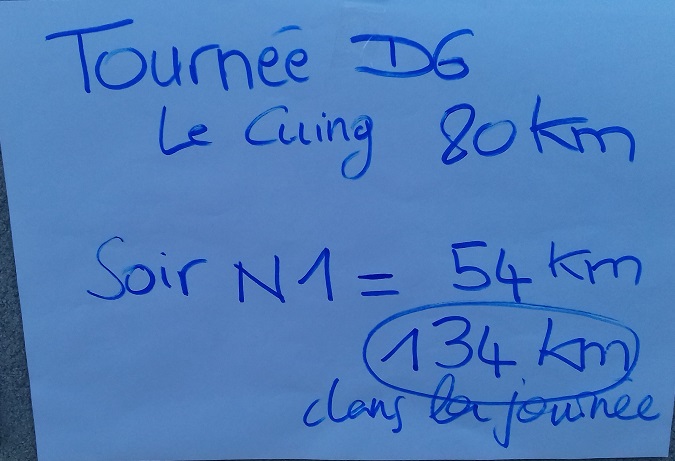 Tournée D6
Le Cuing 80 km
Soir N1 = 54 km
134 km
dans la journée